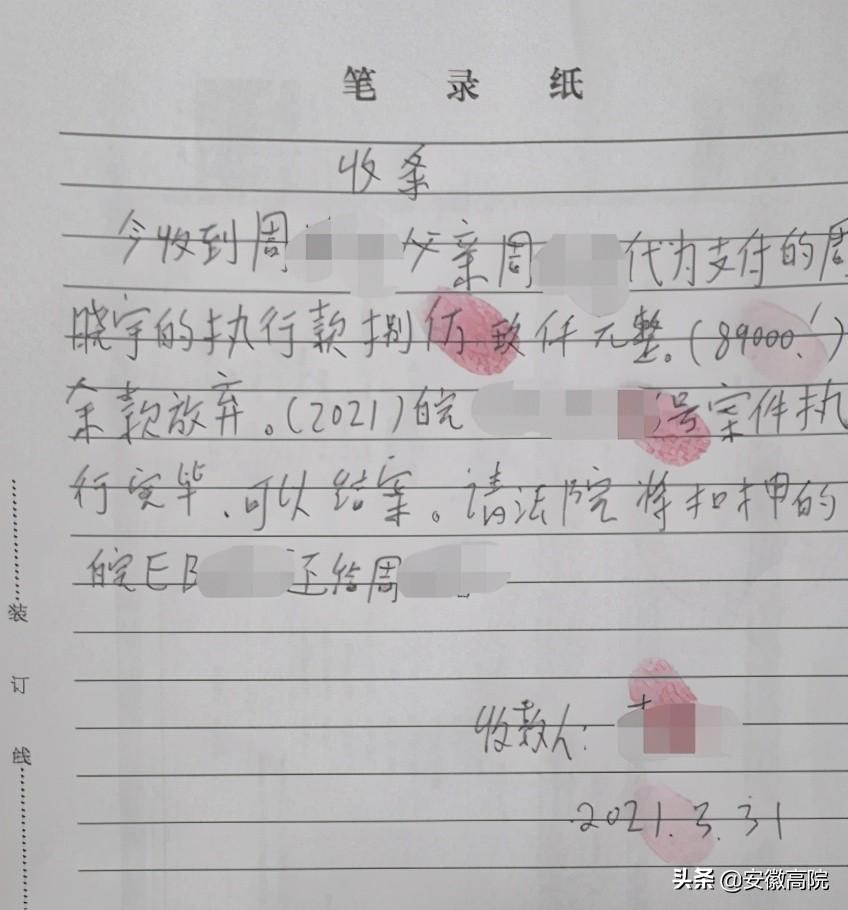 笔录纸
收条
今收到周 父亲周 代为支付的周
晓宇的执行款捌仿玖仟元整。(89000.)
余款放弃。(2021)皖 号案件执
行完毕,可以结案。请法院将扣押的
皖EB 还给周
收款人:
2021.3.31
装
订
线
头条 @安徽高院